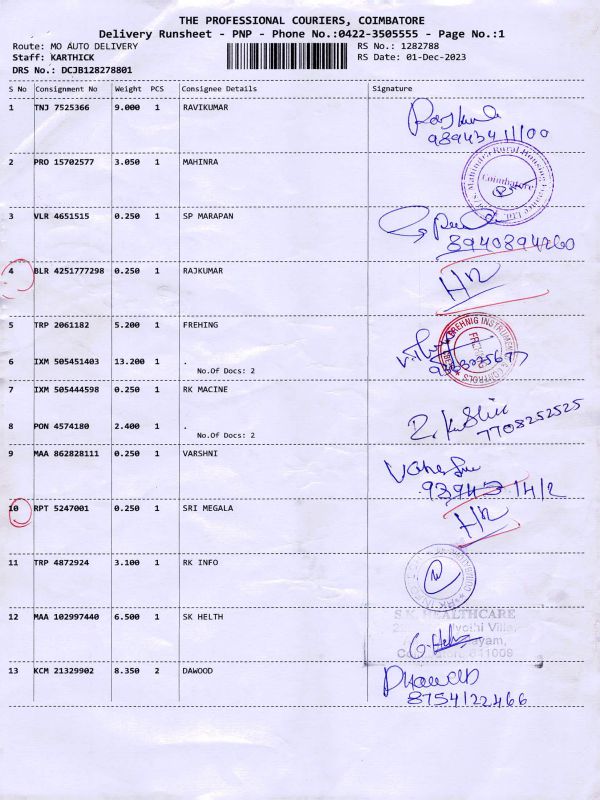 THE PROFESSIONAL COURIERS, COIMBATORE
Delivery Runsheet - PNP - Phone No.:0422-3505555 - Page No.:1
Route: MO AUTO DELIVERY RS No.: 1282788
Staff: KARTHICK RS Date: 01-Dec-2023
DRS No.: DCJB128278801
S No Consignment No Weight PCS Consignee Details Signature
1 TNJ 7525366 9.000 1 RAVIKUMAR
2 PRO 15702577 3.050 1 MAHINRA
Mahindra Rural Housing Finance Ltd.
Coimbatore
3 VLR 4651515 0.250 1 SP MARAPAN
8940894260
4 BLR 4251777298 0.250 1 RAJKUMAR
5 TRP 2061182 5.200 1 FREHING
6 IXM 505451403 13.200 1 .
No.Of Docs: 2
7 IXM 505444598 0.250 1 RK MACINE
8 PON 4574180 2.400 1 .
No.Of Docs: 2
7708252525
9 MAA 862828111 0.250 1 VARSHNI
10 RPT 5247001 0.250 1 SRI MEGALA
11 TRP 4872924 3.100 1 RK INFO
12 MAA 102997440 6.500 1 SK HELTH
S.K. HEALTHCARE
13 KCM 21329902 8.350 2 DAWOOD
8754122466